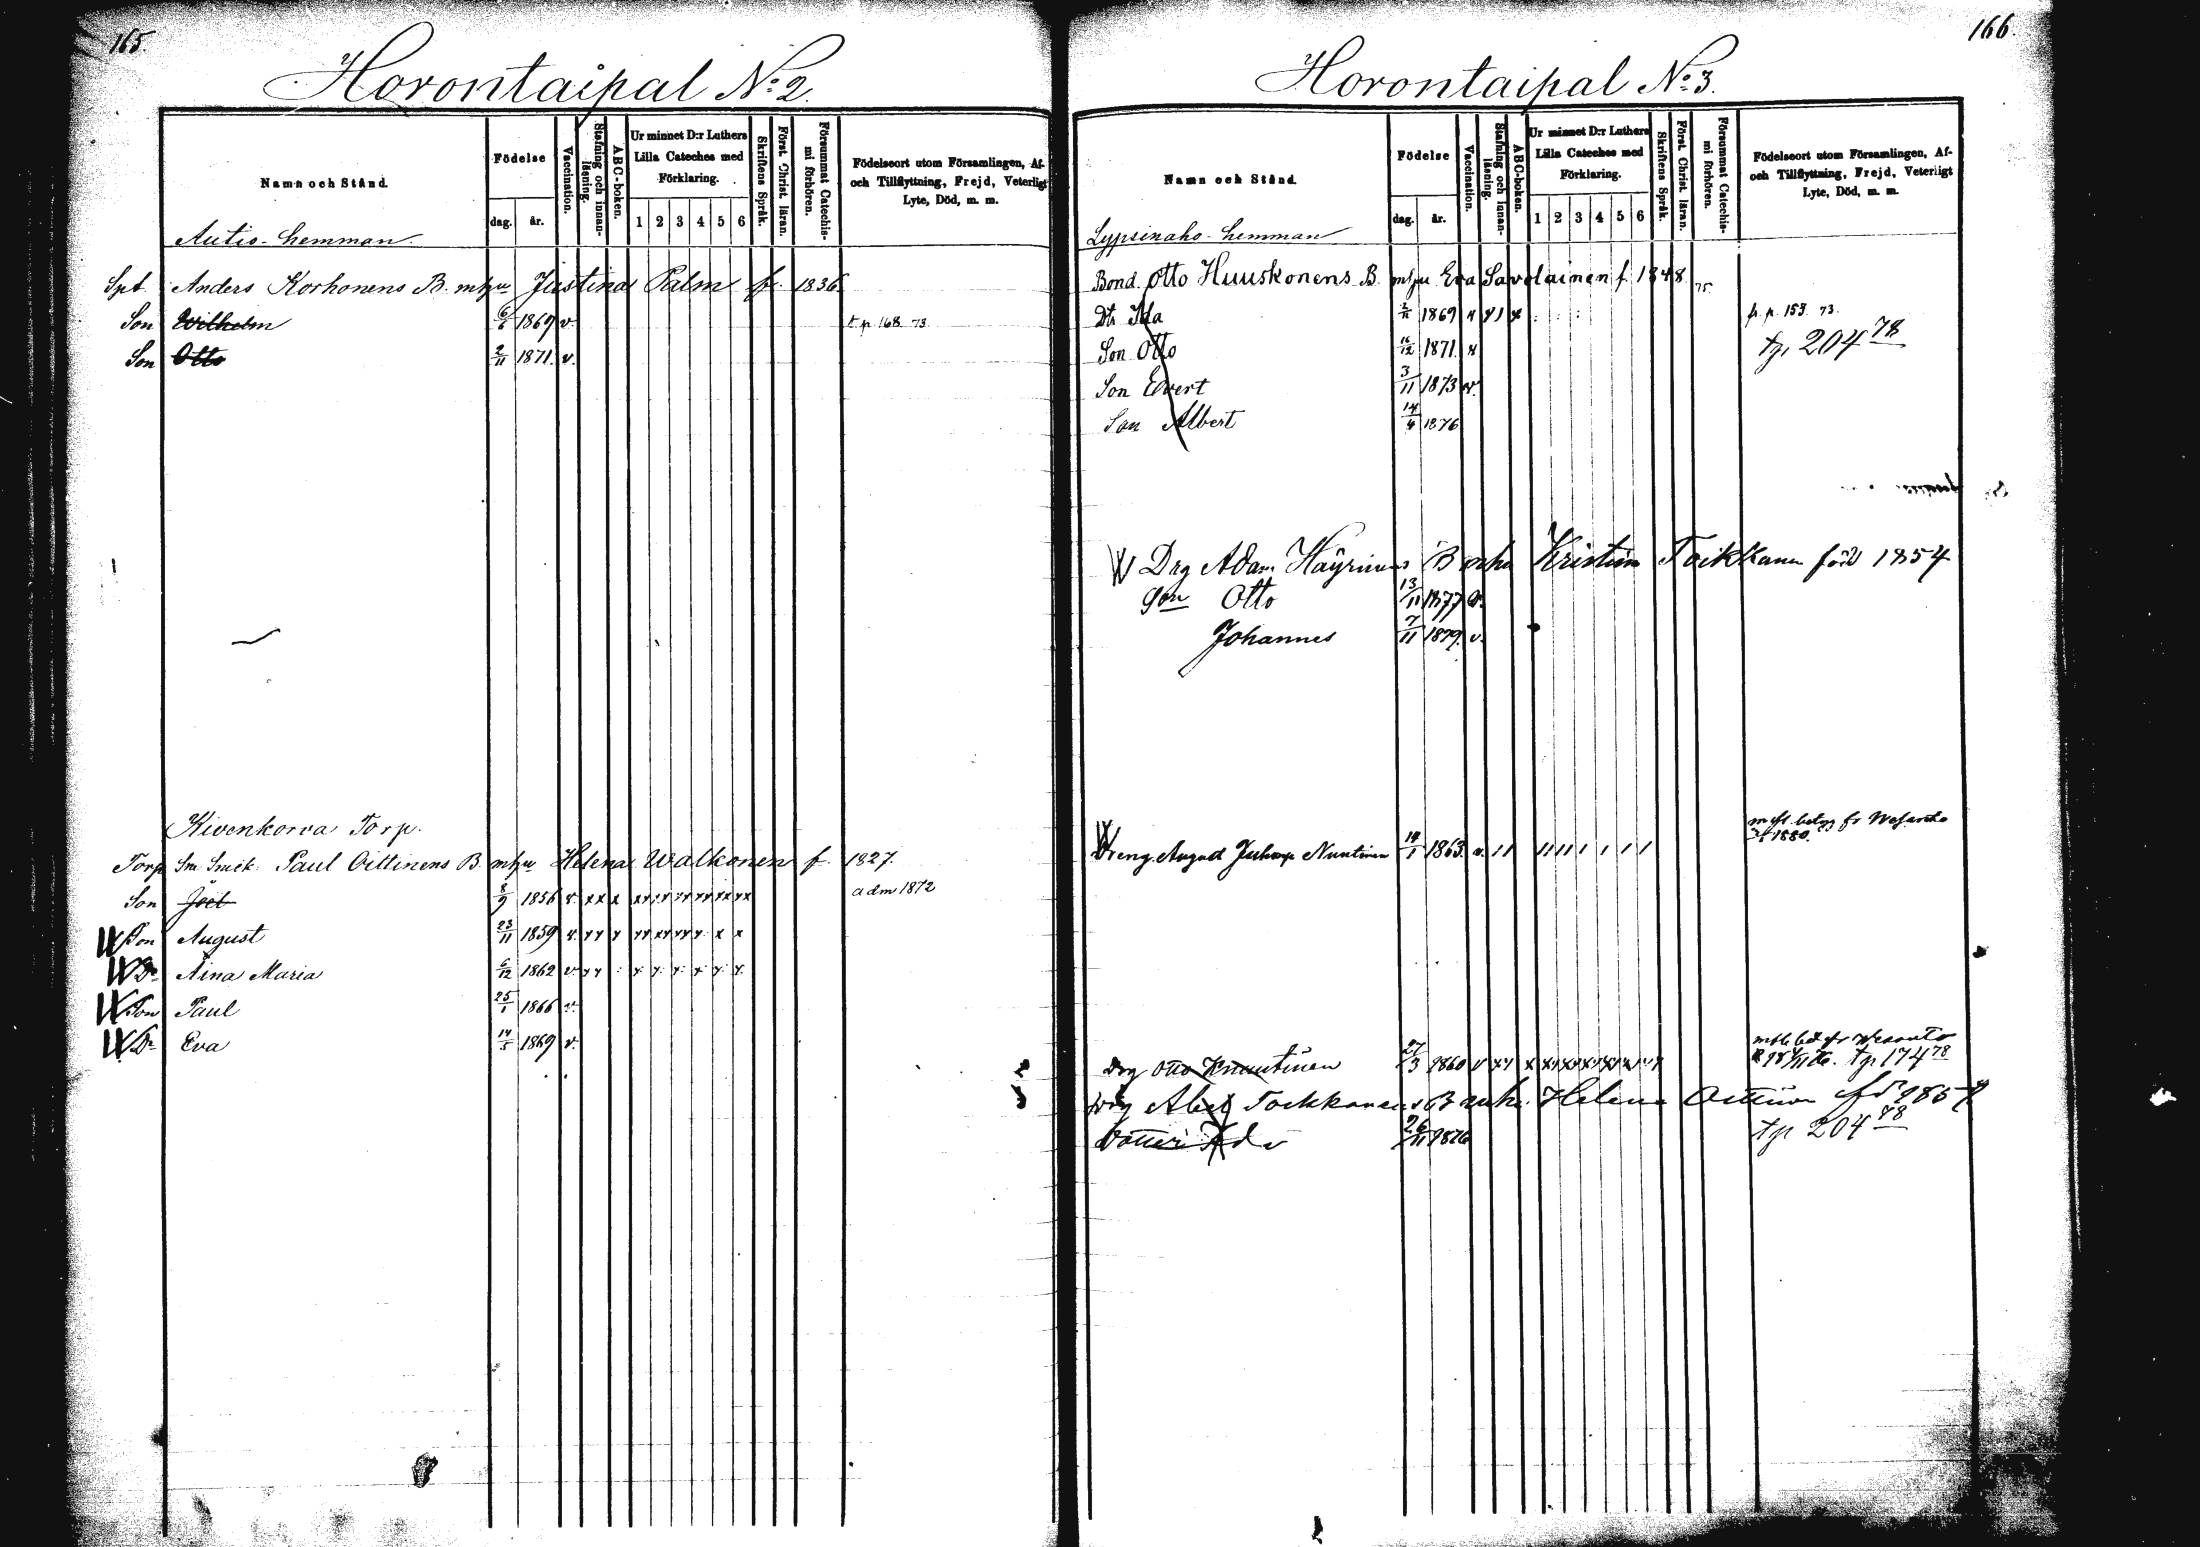 165.
Horontaipal No 2.
Namn och Stånd.
Födelse
dag.
år.
Vaccination.
Stafning och innan-
läsning.
ABC-boken.
Ur minnet D:r Luthers
Lilla Cateches med
Förklaring.
1 2 3 4 5 6
Skriftens Språk.
Först. Christ. läran.
Försummat Catechis-
mi förhören.
Födelseort utom Församlingen, Af-
och Tillflyttning, Frejd, Veterligt
Lyte, Död, m. m.
Autio-hemman.
Spt Anders Korhonens B. mhu Justina Palm f. 1836
Son Wilhelm 6/6 1869 v. t. p. 168 73
Son Otto 2/11 1871. v.
Kivenkorva Torp.
Torp Sm. Smik. Paul Oittinens B. mhu Helena Walkonen f. 1827.
Son Joel 8/9 1856 v. x x x adm 1872
Son August 23/11 1859 v.
Dr Aina Maria 6/12 1862 v
Son Paul 25/1 1866 v.
Dr Eva 14/5 1869 v.
166.
Horontaipal No 3.
Namn och Stånd.
Födelse
dag.
år.
Vaccination.
Stafning och innan-
läsning.
ABC-boken.
Ur minnet D:r Luthers
Lilla Cateches med
Förklaring.
1 2 3 4 5 6
Skriftens Språk.
Först. Christ. läran.
Försummat Catechis-
mi förhören.
Födelseort utom Församlingen, Af-
och Tillflyttning, Frejd, Veterligt
Lyte, Död, m. m.
Lypsinaho-hemman
Bond. Otto Huuskonens B. mhu Eva Savolainen f. 1848 75.
Dtr Ida 1869 f. p. 153 73.
Son Otto 1871. tp. 204 78
Son Evert 3/11 1873 v.
Son Albert 14/4 1876
Drg Adam Häyrinens B och Kristina Toikkanen föd 1854
Son Otto 13/11 1877 v.
Johannes 7/11 1879. v.
Dreng August Nuutinen 14/1 1863. v. m fl. betyg fr Wesanto
1880.
Drg Otto Knuutinen 27/3 1860 v fr Wesanto
tp 174 78
Drg Abel Toikkanens B Helena Oittinen fd 1857
Dotter Ida 26/11 1876 tp 204 78